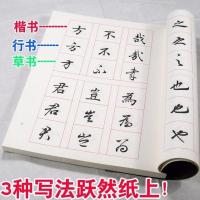 楷书
行书
草书
之之之也也也
哉哉哉為為為
不不不豈豈豈
方方方君君君
3种写法跃然纸上!